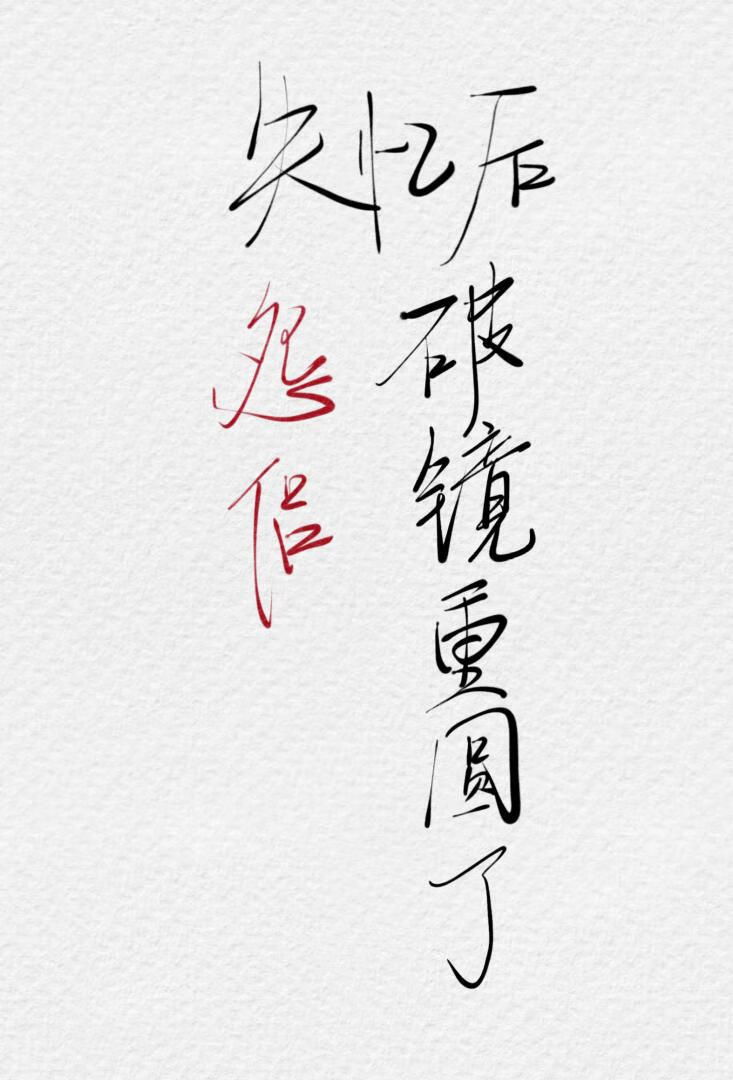 失忆后
破镜重圆了
怨侣